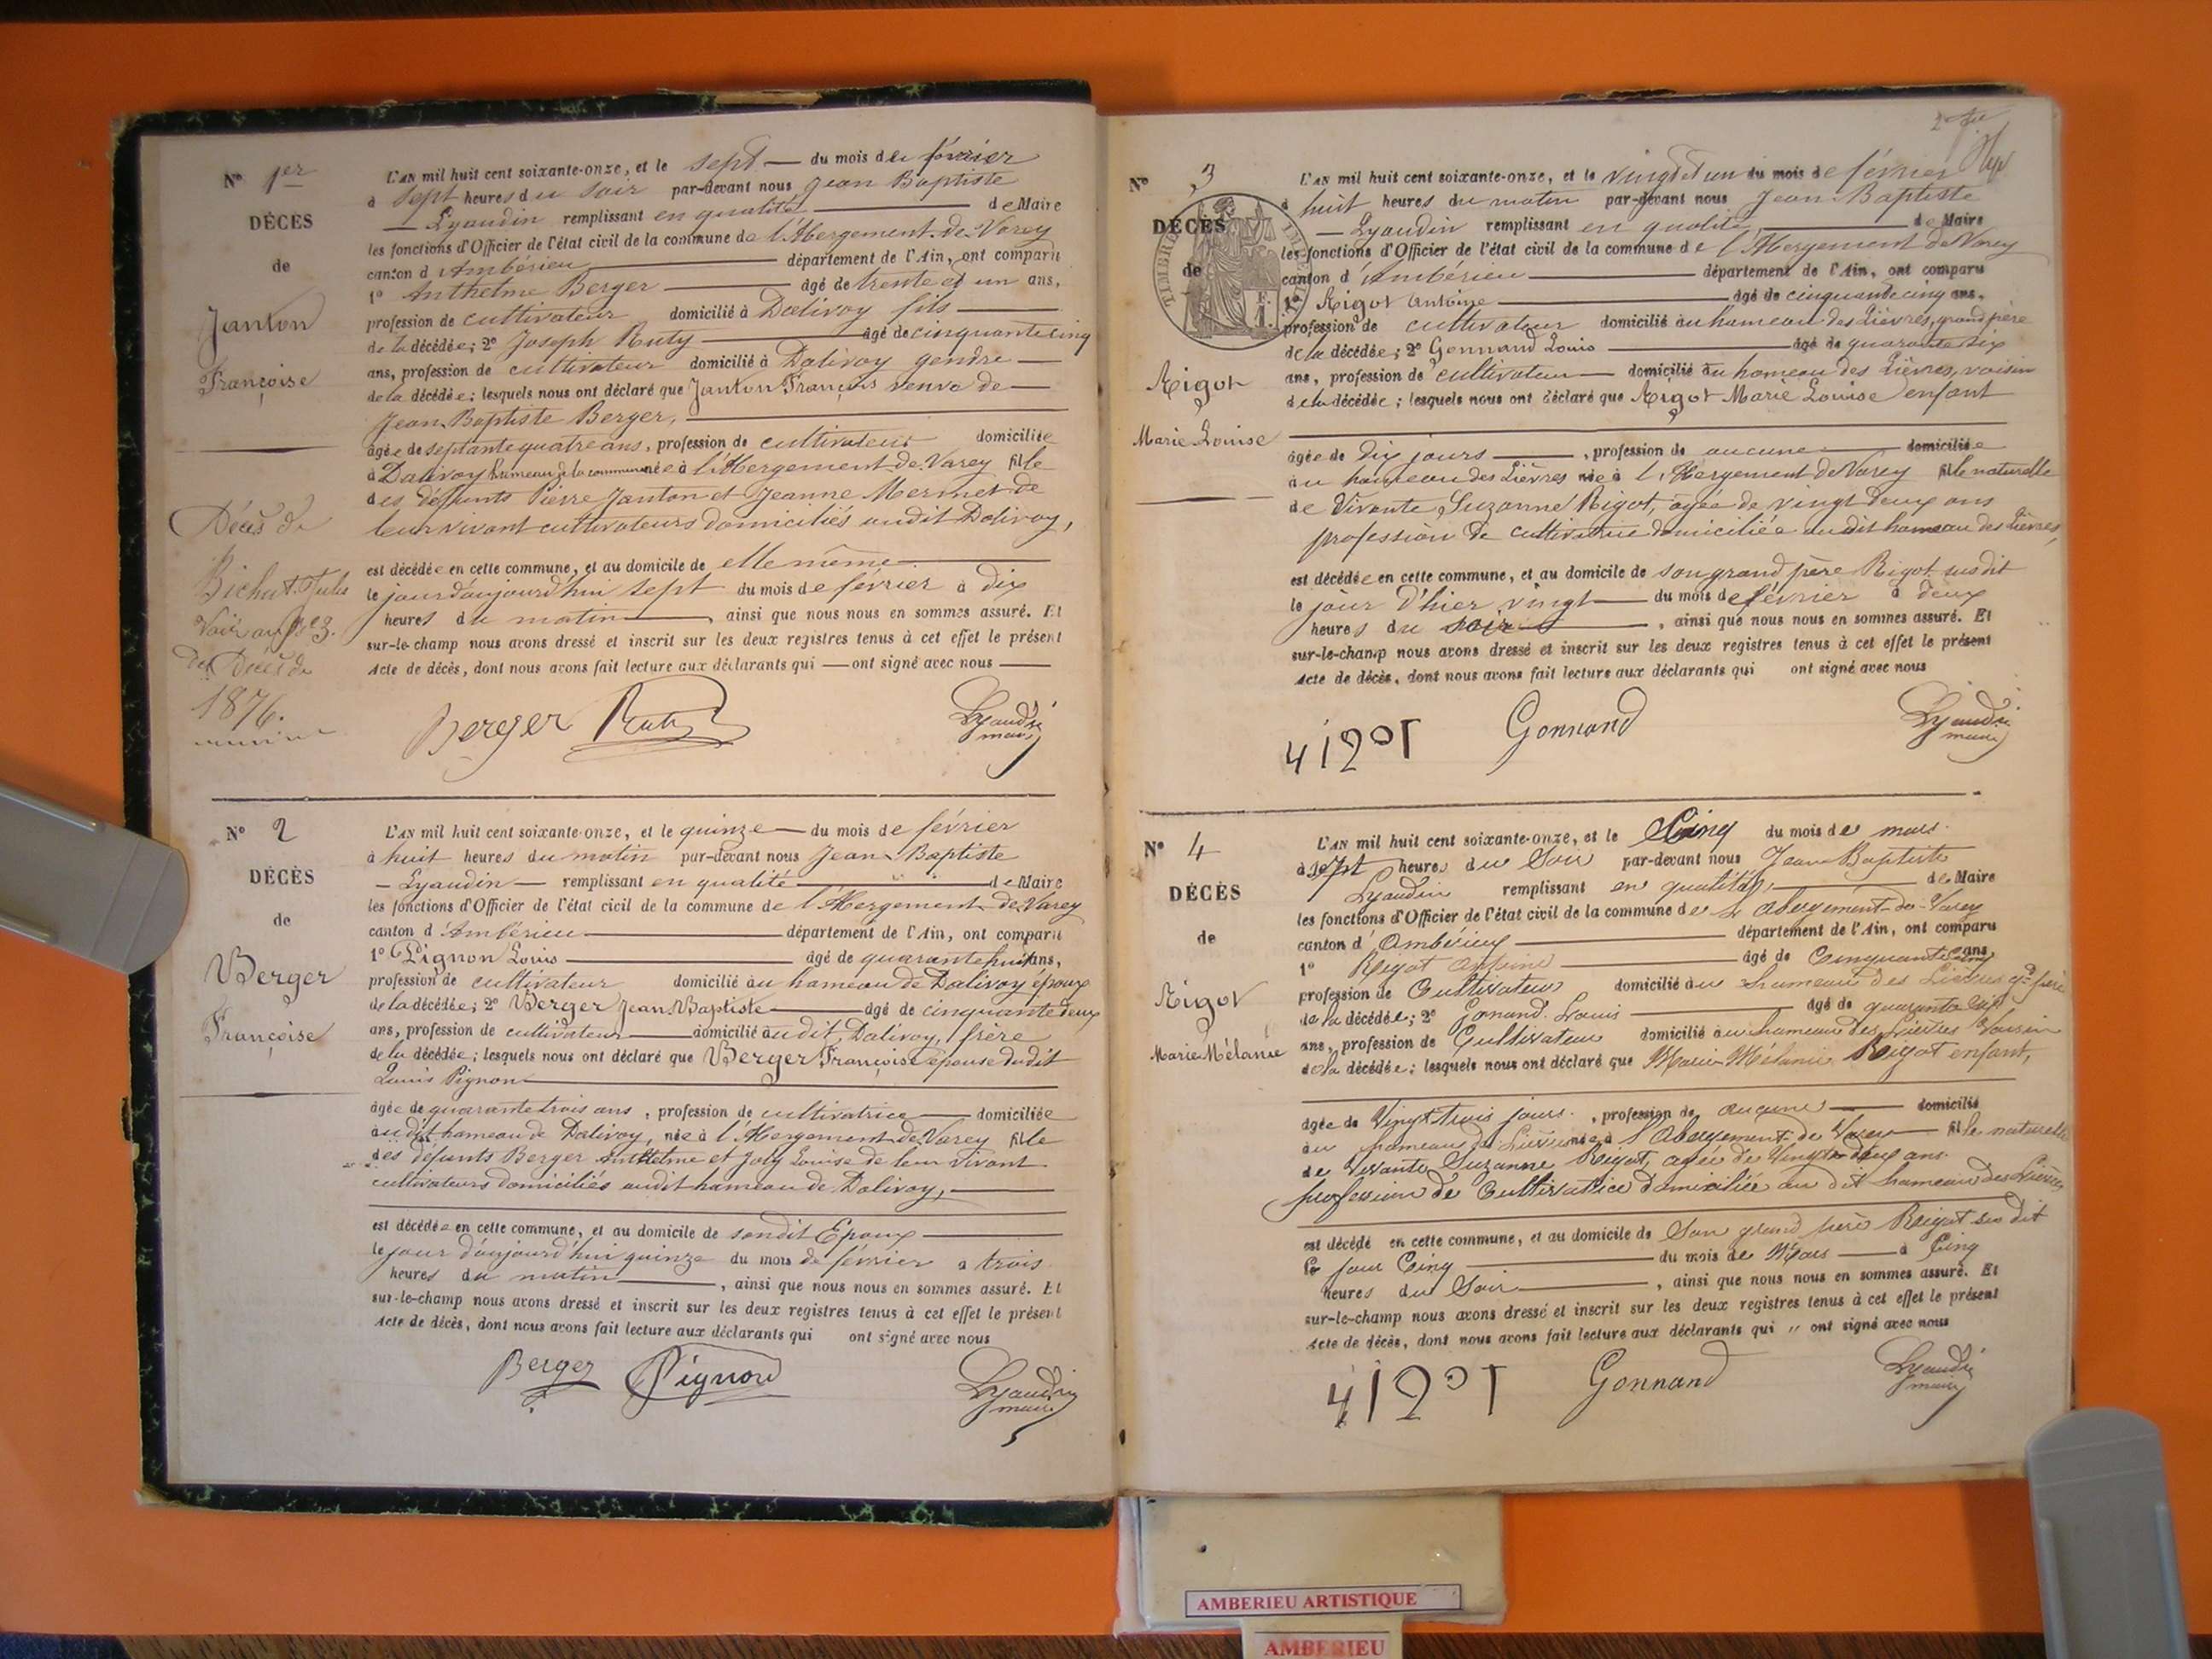 N° 1er
DÉCÈS
de
Janton
Françoise
Décès de
Bichat Jules
Voir au N° 23.
des Décès de
1876.
L'AN mil huit cent soixante-onze, et le sept du mois de février
à sept heures du soir par-devant nous Jean Baptiste
Lyaudin remplissant en qualité de Maire
les fonctions d'Officier de l'état civil de la commune de l'Abergement-de-Varey
canton d'Ambérieu département de l'Ain, ont comparu
1° Anthelme Berger âgé de trente et un ans,
profession de cultivateur domicilié à Dalivoy fils
de la décédée; 2° Joseph Ruty âgé de cinquante cinq
ans, profession de cultivateur domicilié à Dalivoy gendre
de la décédée; lesquels nous ont déclaré que Janton François veuve de
Jean Baptiste Berger,
âgée de septante quatre ans, profession de cultivateur domiciliée
à Dalivoy hameau de la commune née à l'Abergement-de-Varey fille
des défunts Pierre Janton et Jeanne Mermet de
leur vivant cultivateurs domiciliés audit Dalivoy,
est décédée en cette commune, et au domicile de elle même
le jour d'aujourd'hui sept du mois de février à dix
heures du matin, ainsi que nous nous en sommes assuré. Et
sur-le-champ nous avons dressé et inscrit sur les deux registres tenus à cet effet le présent
Acte de décès, dont nous avons fait lecture aux déclarants qui ont signé avec nous
Berger Ruty Lyaudin
maire
N° 2
DÉCÈS
de
Berger
Françoise
L'AN mil huit cent soixante-onze, et le quinze du mois de février
à huit heures du matin par-devant nous Jean Baptiste
Lyaudin remplissant en qualité de Maire
les fonctions d'Officier de l'état civil de la commune de l'Abergement-de-Varey
canton d'Ambérieu département de l'Ain, ont comparu
1° Pignon Louis âgé de quarante huit ans,
profession de cultivateur domicilié au hameau de Dalivoy époux
de la décédée; 2° Berger Jean Baptiste âgé de cinquante deux
ans, profession de cultivateur domicilié audit Dalivoy, frère
de la décédée; lesquels nous ont déclaré que Berger Françoise épouse dudit
Louis Pignon
âgée de quarante trois ans, profession de cultivatrice domiciliée
audit hameau de Dalivoy, née à l'Abergement-de-Varey fille
des défunts Berger Anthelme et Joly Louise de leur vivant
cultivateurs domiciliés audit hameau de Dalivoy,
est décédée en cette commune, et au domicile de son dit Epoux
le jour d'aujourd'hui quinze du mois de février à trois
heures du matin, ainsi que nous nous en sommes assuré. Et
sur-le-champ nous avons dressé et inscrit sur les deux registres tenus à cet effet le présent
Acte de décès, dont nous avons fait lecture aux déclarants qui ont signé avec nous
Berger Pignon Lyaudin
maire
N° 3
DÉCÈS
de
Rigot
Marie Louise
L'AN mil huit cent soixante-onze, et le vingt et un du mois de février
à huit heures du matin par-devant nous Jean Baptiste
Lyaudin remplissant en qualité de Maire
les fonctions d'Officier de l'état civil de la commune de l'Abergement de Varey
canton d'Ambérieu département de l'Ain, ont comparu
1° Rigot Antoine âgé de cinquante cinq ans,
profession de cultivateur domicilié au hameau des Lièvres, grand père
de la décédée; 2° Gonnand Louis âgé de quarante six
ans, profession de cultivateur domicilié au hameau des Lièvres, voisin
de la décédée; lesquels nous ont déclaré que Rigot Marie Louise enfant
âgée de dix jours, profession de aucune domiciliée
au hameau des Lièvres née à l'Abergement de Varey fille naturelle
de Vivante Suzanne Rigot, âgée de vingt deux ans
profession de cultivatrice domiciliée audit hameau des Lièvres,
est décédée en cette commune, et au domicile de son grand père Rigot susdit
le jour d'hier vingt du mois de février à deux
heures du soir, ainsi que nous nous en sommes assuré. Et
sur-le-champ nous avons dressé et inscrit sur les deux registres tenus à cet effet le présent
Acte de décès, dont nous avons fait lecture aux déclarants qui ont signé avec nous
Rigot Gonnand Lyaudin
maire
N° 4
DÉCÈS
de
Rigot
Marie Mélanie
L'AN mil huit cent soixante-onze, et le Cinq du mois de mars
à sept heures du Soir par-devant nous Jean Baptiste
Lyaudin remplissant en qualité de Maire
les fonctions d'Officier de l'état civil de la commune de l'Abergement-de-Varey
canton d'Ambérieux département de l'Ain, ont comparu
1° Rigot Antoine âgé de Cinquante cinq ans,
profession de Cultivateur domicilié au hameau des Lièvres gd père
de la décédée; 2° Gonand Louis âgé de quarante six
ans, profession de Cultivateur domicilié au hameau des Lièvres Voisin
de la décédée; lesquels nous ont déclaré que Marie Mélanie Rigot enfant,
âgée de Vingt trois jours, profession de aucune domicilié
au hameau des Lièvres née à l'Abergement-de-Varey fille naturelle
de Vivante Suzanne Rigot, agée de Vingt deux ans
profession de Cultivatrice domiciliée au dit hameau des Lièvres
est décédé en cette commune, et au domicile de Son grand père Rigot sus dit
le jour Cinq du mois de Mars à Cinq
heures du Soir, ainsi que nous nous en sommes assuré. Et
sur-le-champ nous avons dressé et inscrit sur les deux registres tenus à cet effet le présent
Acte de décès, dont nous avons fait lecture aux déclarants qui " ont signé avec nous
Rigot Gonnand Lyaudin
maire
AMBERIEU ARTISTIQUE
AMBERIEU